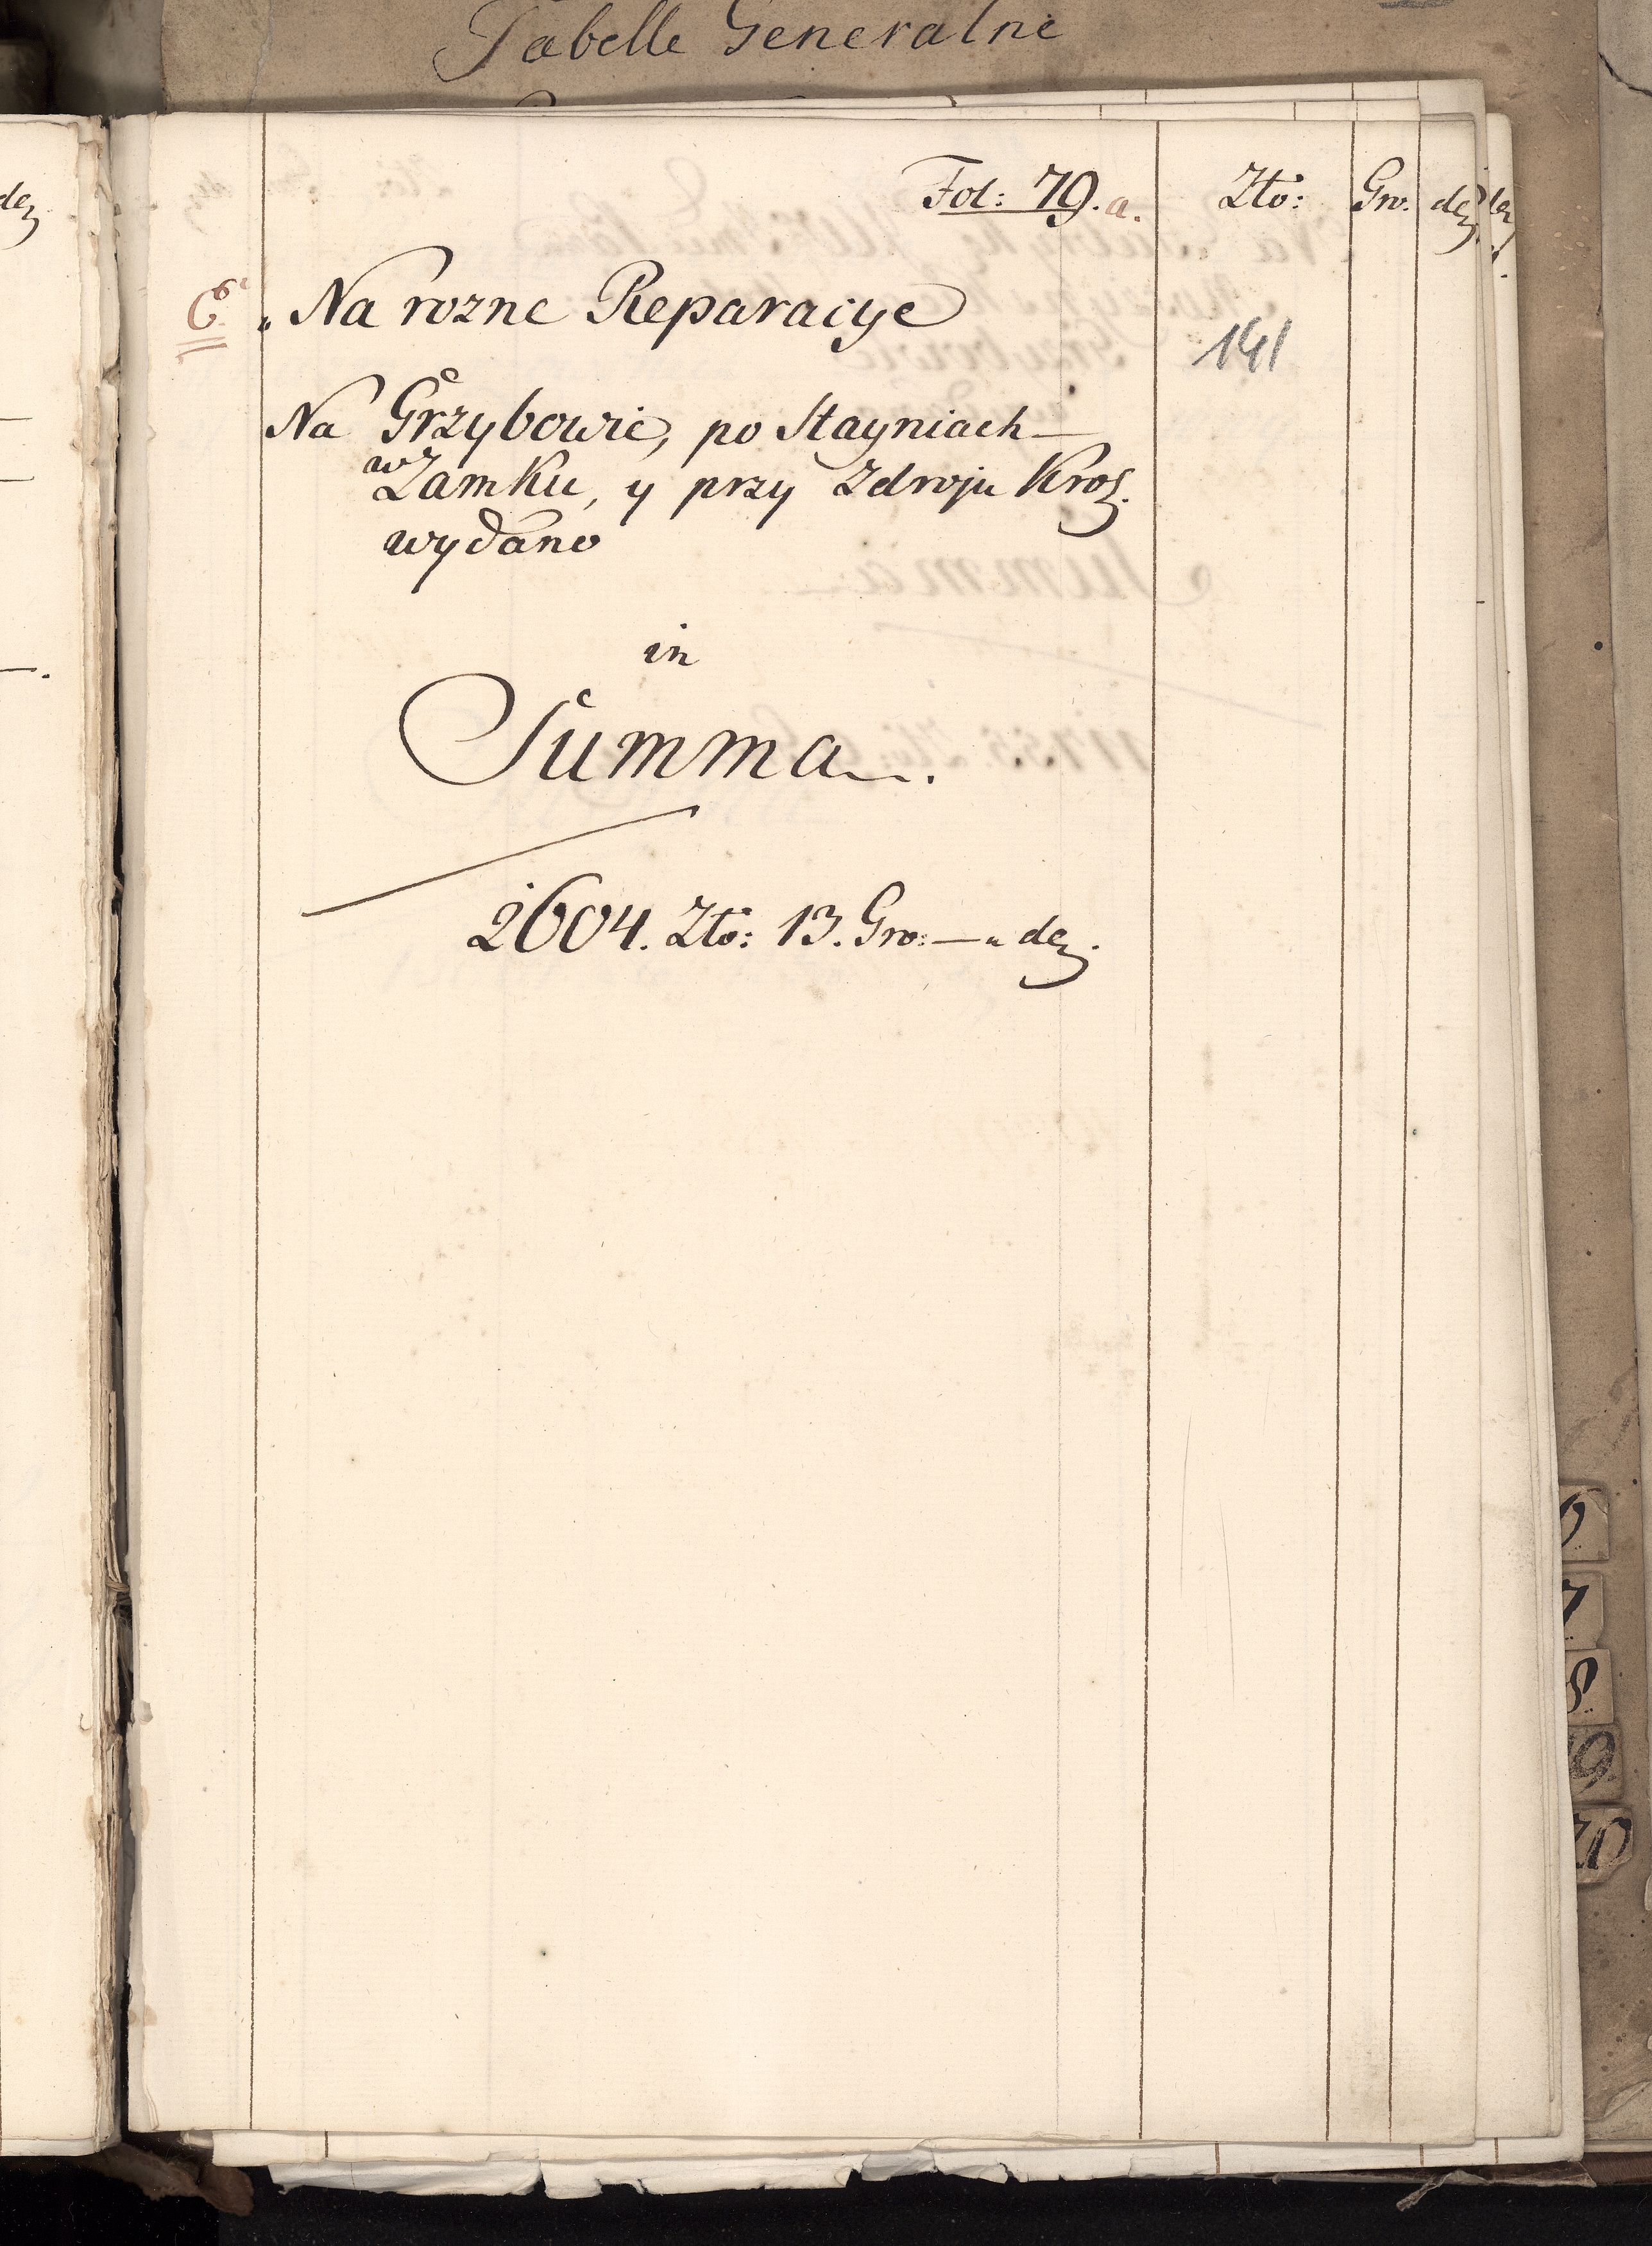 Tabelle Generalne
dez
Fol: 79. a. Zło: Gro. dez
6. „ Na rozne Reparacije
141
Na Grzybowie, po Stayniach —
w Zamku, y przy Zdroju Kros.
wydano
in
Summa.
2604. Zło: 13. Gro: —„ dez.
7
8.
9.
20